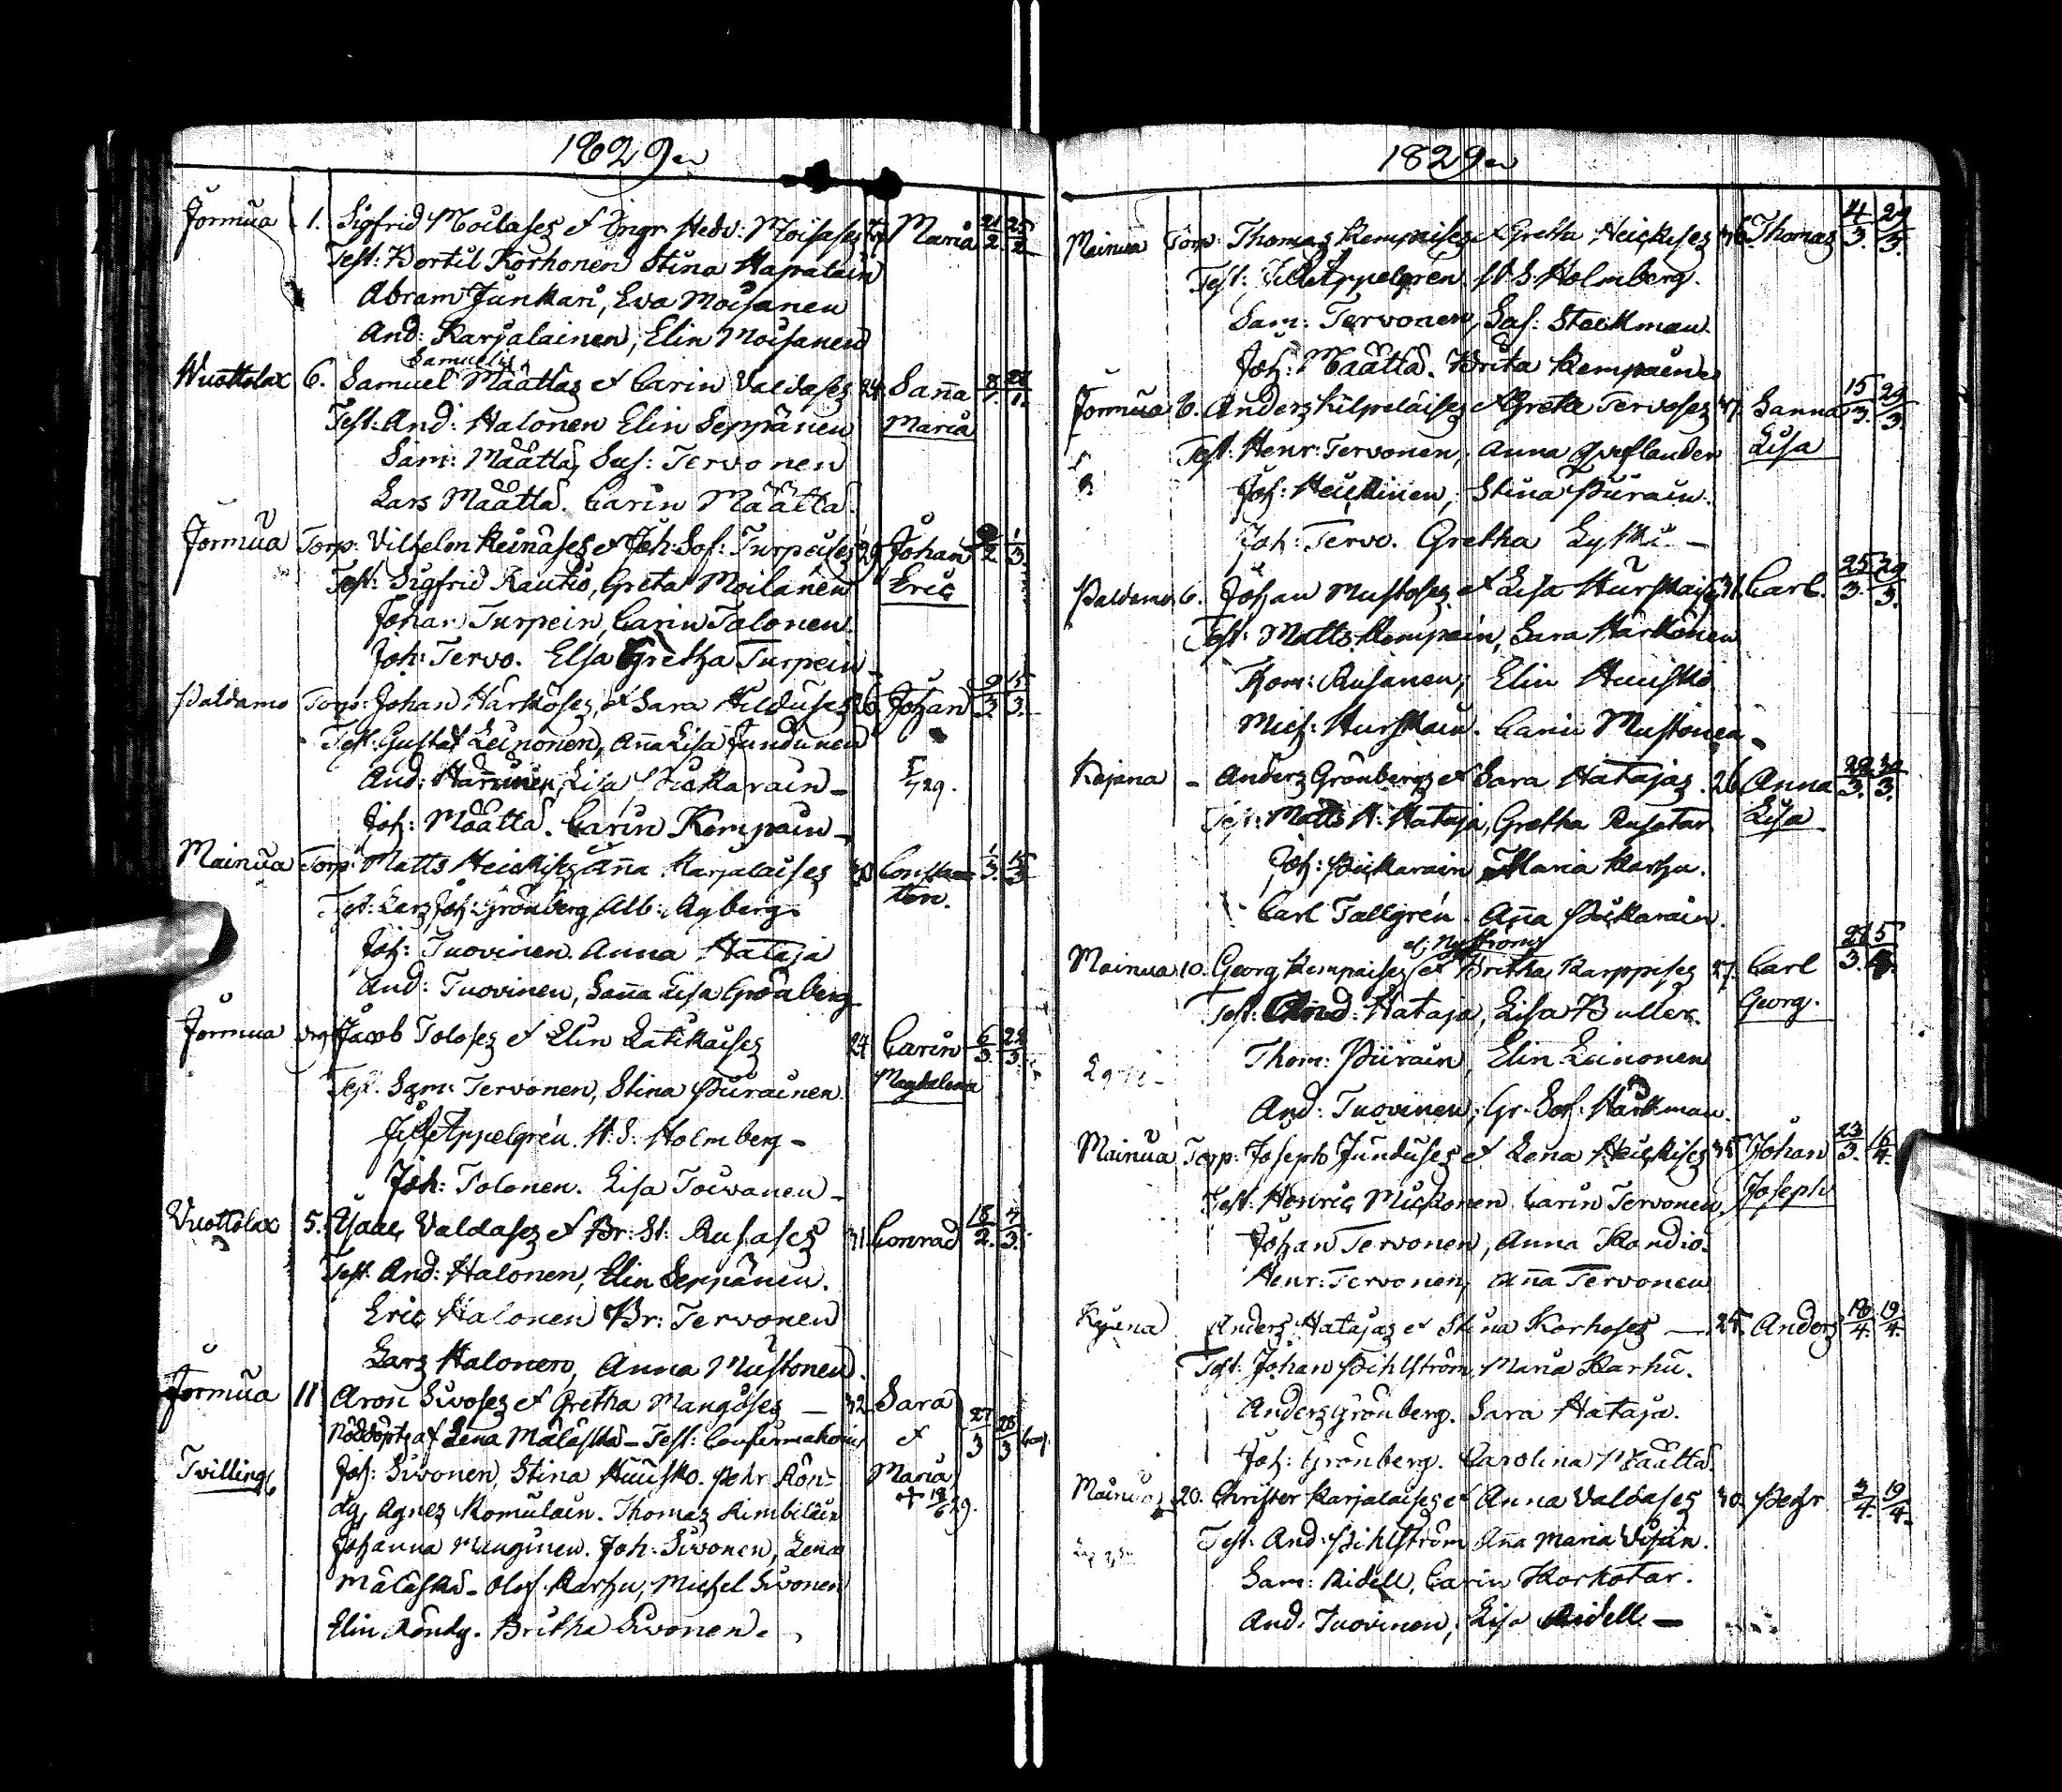 1829
Jormua 1. Sigfrid Moilases et Ingr Hedv: Moisases Maria 21/2 25/2
Test: Bertil Korhonen Stina Hapalain
Abram Junkari, Eva Moisanen
And: Karjalainen, Elin Moisanen
Samuelis
Wuottolax 6. Samuel Määttäs et Carin Valdases 24 Sanna 8/1 28/1
Test: And: Halonen Elin Seppänen Maria
Sam: Määttä, Sus: Tervonen
Lars Määttä. Carin Määttä
Jormua Torp: Vilhelm Keinäses et Joh: Sof: Turpeises 29 Johan 1/3
Test: Sigfrid Rautio, Greta Moilanen Eric
Johan Turpein, Carin Talonen
Joh: Tervo. Elsa Gretha Turpein
Paldamo Torp: Johan Härköses, et Sara Hilduses 26 Johan 9/3 15/3
Test: Gustaf Leinonen, Anna Lisa Jundunen
And: Lisa Pickarain
Joh: Määttä. Carin Kempain
Mainua Torp: Matts Heickises Anna Karjalaises 30 Constan 1/3 15/3
Test: Lars Joh: Grönberg, Alb: Agberg tin.
Joh: Tuovinen. Anna Hataja
And: Tuovinen, Sanna Lisa Grönberg
Jormua Jacob Toloses et Elin Latikaises 24 Carin 6/3 22/3
Test. Sam: Tervonen, Stina Puurainen Magdalena
Appelgrén. H. S: Holmberg
Joh: Tolonen. Lisa Toivanen
Vuottolax 5. Isaac Valdases et Br: St: Rusases 31 Conrad 18/2
Test. And: Halonen, Elin Seppänen.
Eric Halonen Br: Tervonen
Lars Halonen, Anna Mustonen.
Jormua 11 Aron Sivoses et Gretha Mangoses — 32 Sara
Nöddöpts af Lena Mäläskä – Test: Confirmationis et 27/3 28/3
Tvillingt Joh: Sivonen, Stina Huusko. Pehr Kön- Maria
dg, Agnes Komulain. Thomas Kimbiläin + 18/6 29.
Johanna Manginen. Joh: Sivonen, Lena
Mäläskä – Olof Karhu, Michel Sivonen
Elin Köndg. Britha Sivonen.
1829
Mainua Torp: Thomas Kempaises et Gretha Heickises 36 Thomas 11/3 29/3
Test: Appelgren. H. S: Holmberg.
Sam: Tervonen, Sof: Steckman
Joh: Määttä. Brita Kempainen
Jormua 6. Anders Kilpeläises et Greta Tervoses 37. Sanna 15/3 29/3
Test. Henr: Tervonen, Anna Lisa
Joh: Heickinen, Stina Puurain.
Joh: Tervo. Gretha Lytki
Paldamo 6. Johan Mustoses et Lisa Hurskais 31. Carl. 25/3 29/3
Test: Matts Kempain, Sara Härkönen
Thom: Rusanen, Elin Huusko
Mich: Hurskain. Carin Mustonen
Kajana – Anders Grönbergs et Sara Hatajas. 26 Anna 29/3
Test: Matts H: Hataja, Gretha Rusatar. Lisa
Joh: Pickarain Maria Karhu.
Carl Tallgrén. Anna Pickarain.
Mainua 10. Georg Kempaises et Britha Karppises 27. Carl 28/3 5/4
Test: And: Hataja, Lisa Buller. Georg.
Thom: Puurain, Elin Leinonen
And: Tuovinen, Gr. Sof: Hårkman.
Mainua Torp: Joseph Junduses et Lena Heickises 35 Johan 23/3 16/4
Test. Henric Mickonen Carin Tervonen, Joseph
Johan Tervonen, Anna Kandio.
Henr: Tervonen, Anna Tervonen
Kajana Anders Hatajas et Stina Korhoses — 25. Anders 18/4 19/4
Test: Johan Pihlström, Maria Karhu.
Anders Grönberg. Sara Hataja.
Joh: Grönberg. Carolina Määttä.
Mainua 20. Christer Karjalaises et Anna Valdases 30. Pehr 3/4 19/4
Test: And: Pihlström Anna Maria Visän.
Sam: Ridell, Carin Korkotar.
And. Tuovinen, Lisa Ridell. —